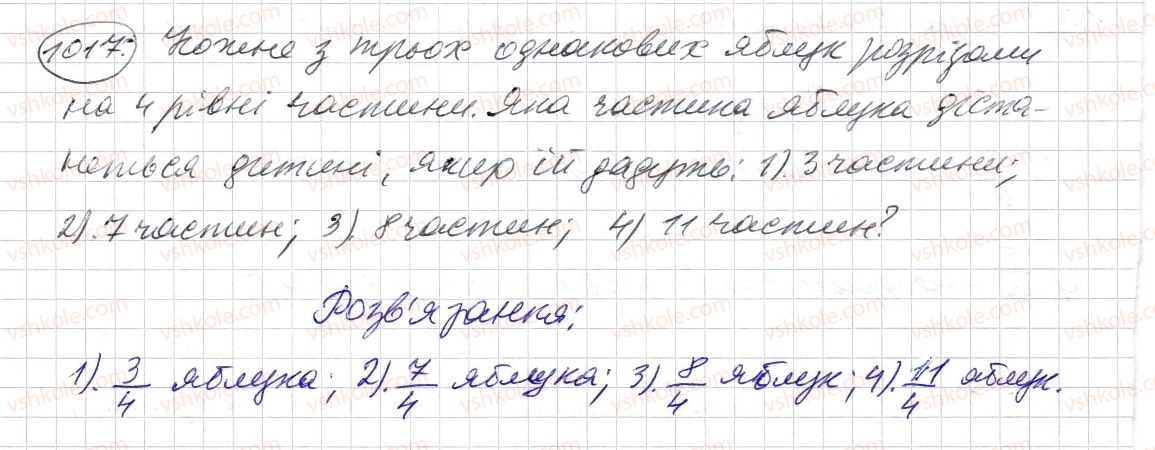 1017. Кожне з трьох однакових яблук розрізали
на 4 рівні частини. Яка частина яблука діста-
неться дитині, якщо їй дадуть: 1). 3 частини;
2). 7 частин; 3). 8 частин; 4) 11 частин?
Розв'язання:
1). 3/4 яблука; 2). 7/4 яблука; 3). 8/4 яблук; 4). 11/4 яблук.